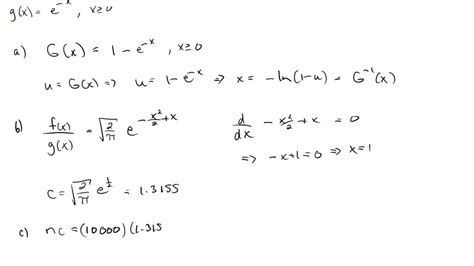 g(x) = e^{-x} , x≥0
a) G(x) = 1 - e^{-x} , x≥0
u = G(x) => u = 1 - e^{-x} => x = -ln(1-u) = G^{-1}(x)
b) f(x)/g(x) = √(2/π) e^{-x²/2+x}
d/dx -x²/2 + x = 0
=> -x+1=0 => x=1
c = √(2/π) e^{1/2} = 1.3155
c) nc = (10000)(1.315